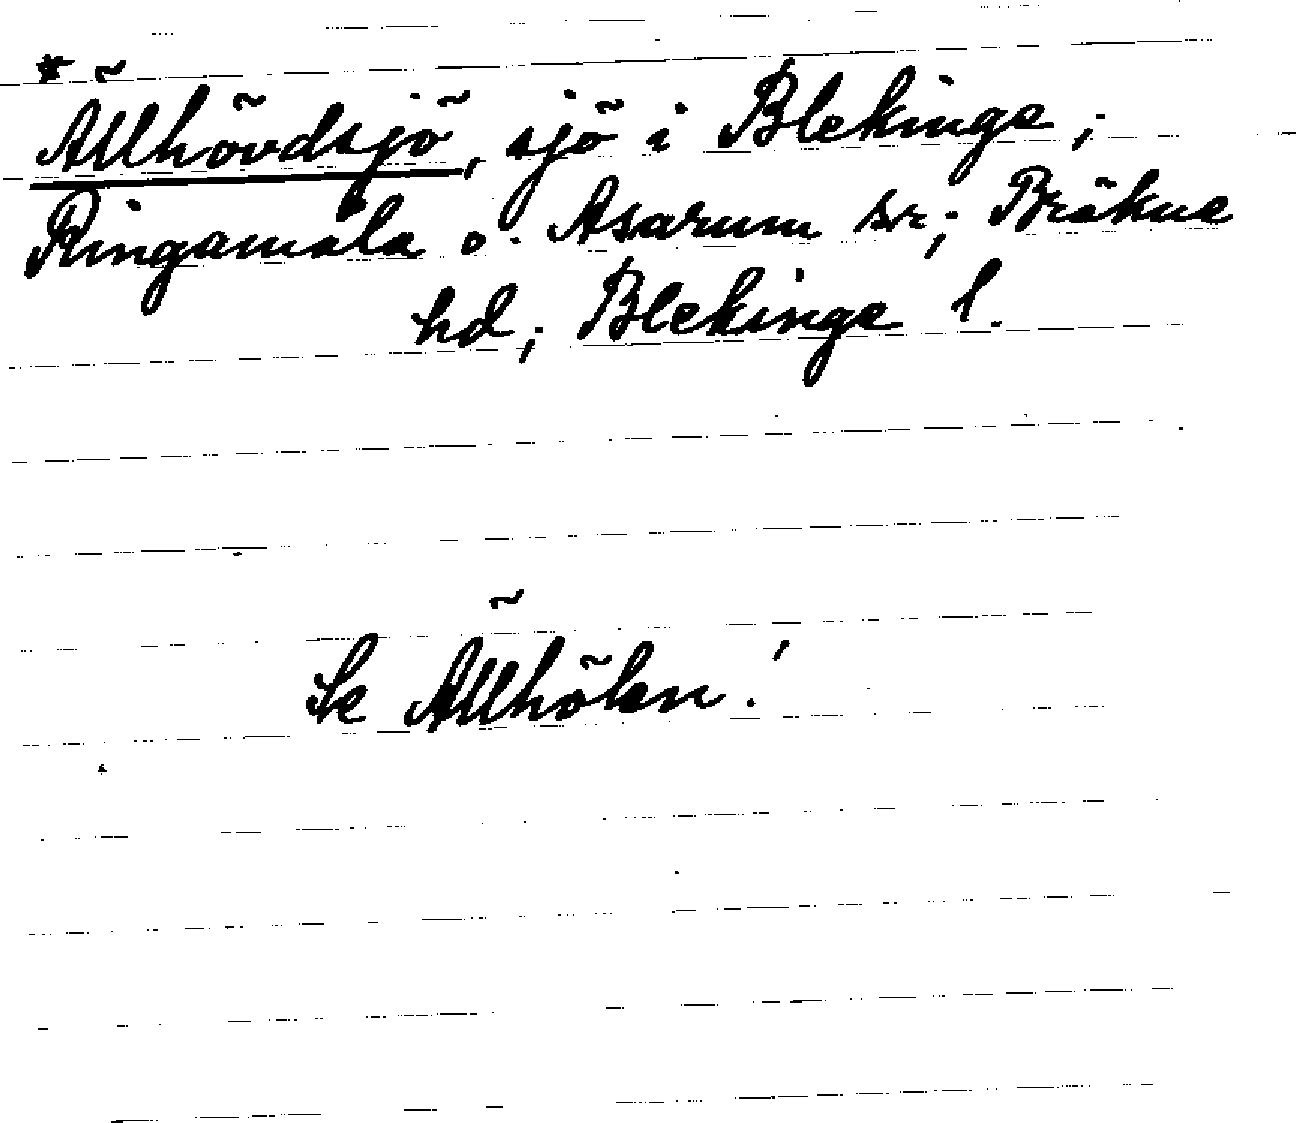 * Ällhövdsjö, sjö i Blekinge;
Ringamåla o. Asarum sr; Bräkne
hd; Blekinge l.
Se Ällhölen!